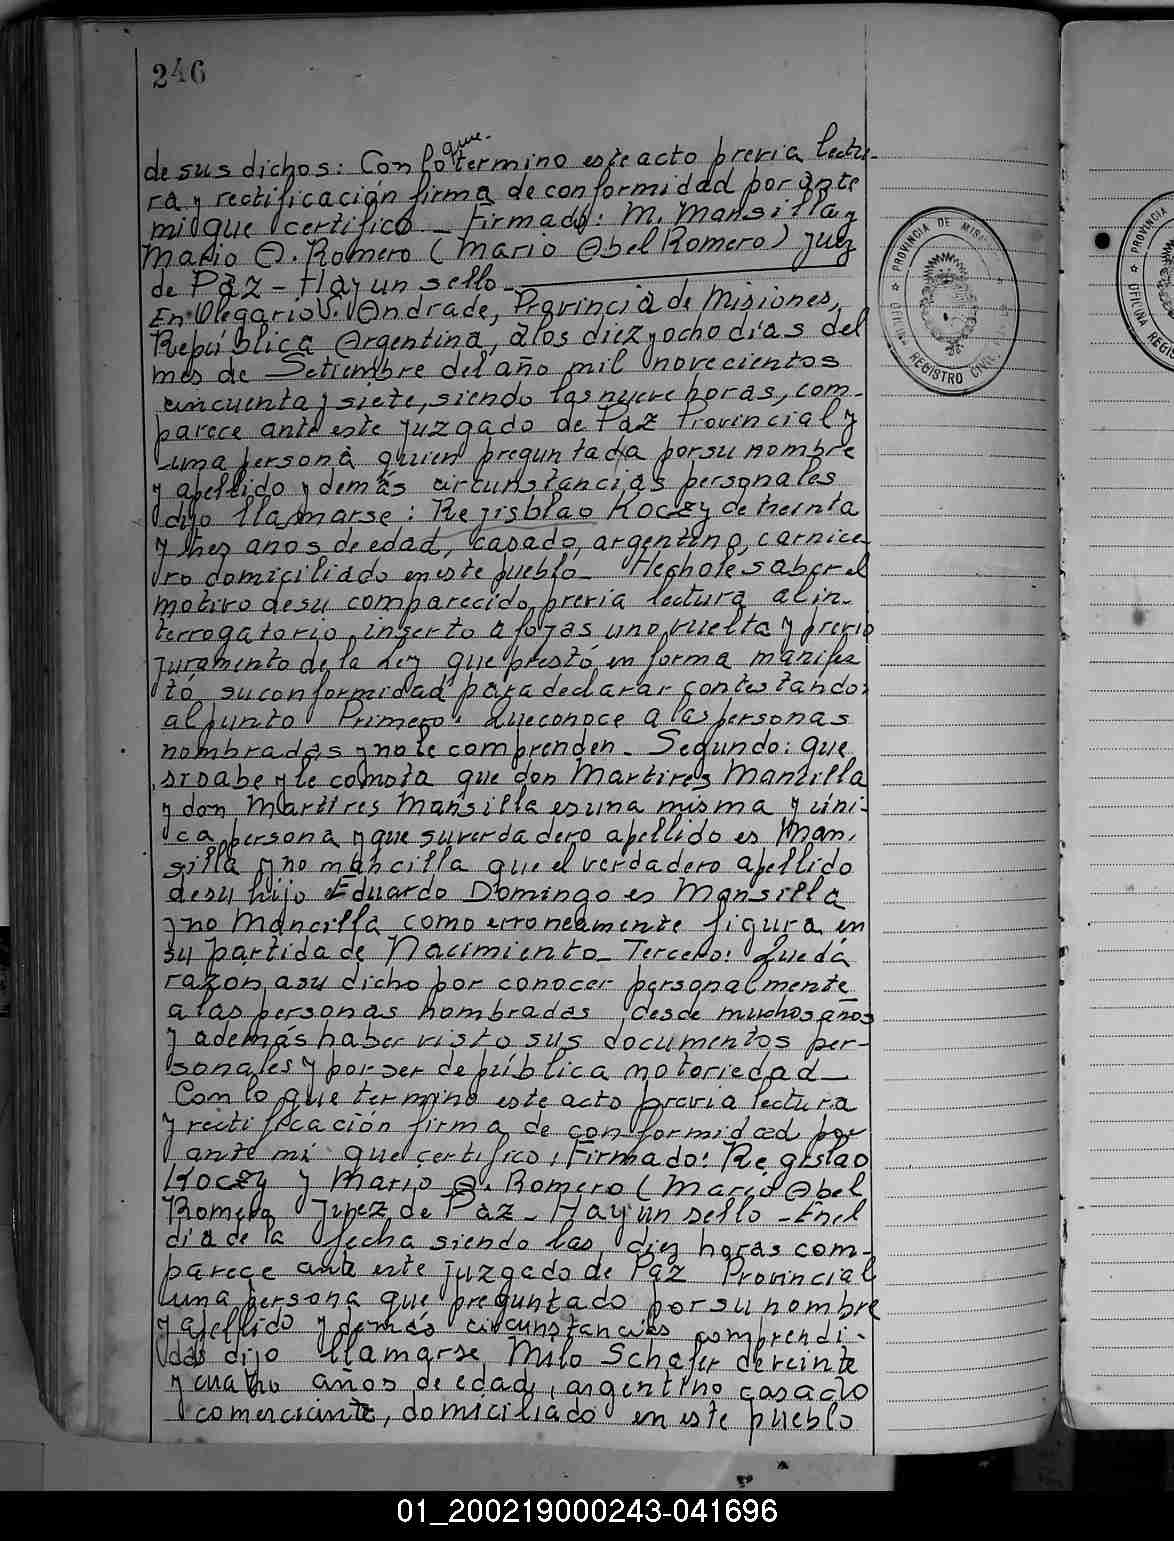 246
de sus dichos: Con lo que termino este acto previa lectu-
ra y rectificación firma de conformidad por ante
mi que certifico _ Firmado: M. Mansilla y
Mario O. Romero (Mario Obel Romero) Juez
de Paz - Hay un sello -
En Olegario V. Andrade, Provincia de Misiones,
República Argentina, a los diez y ocho dias del
mes de Setiembre del año mil novecientos
cincuenta y siete, siendo las nueve horas, com-
parece ante este juzgado de Paz Provincial y
una persona quien preguntada por su nombre
y apellido y demás circunstancias personales
dijo llamarse: Regisblao Koczy de treinta
y tres anos de edad, casado, argentino, carnice
ro domiciliado en este pueblo - Hechole saber el
motivo de su comparecido previa lectura al in-
terrogatorio inserto a fojas uno vuelta y previo
juramento de la Ley que prestó en forma manifes
tó su conformidad para declarar contestando:
al punto Primero: Que conoce a las personas
nombradas y no le comprenden - Segundo: que
si sabe y le consta que don Martires Mancilla
y don Martires Mansilla es una misma y úni-
ca persona y que su verdadero apellido es Man-
silla y no mancilla que el verdadero apellido
de su hijo Eduardo Domingo es Mansilla
y no Mancilla como erroneamente figura en
su partida de Nacimiento - Tercero: Que dá
razon a su dicho por conocer personalmente
a las personas nombradas, desde muchos años
y además haber visto sus documentos per-
sonales y por ser de pública notoriedad _
Con lo que termino este acto previa lectura
y rectificación firma de conformidad por
ante mi que certifico: Firmado: Regislao
Koczy y Mario O. Romero (Mario Obel
Romero Juez de Paz - Hay un sello - En el
dia de la fecha siendo las diez horas com-
parece ante este juzgado de Paz Provincial
una persona que preguntado por su nombre
y apellido y demás circunstancias comprendi-
das dijo llamarse Milo Schafer de veinte
y cuatro años de edad, argentino casado
comerciante, domiciliado en este pueblo
PROVINCIA DE MISI
REGISTRO CIVIL
PROVINCIA
OFICINA REGIS
01_200219000243-041696